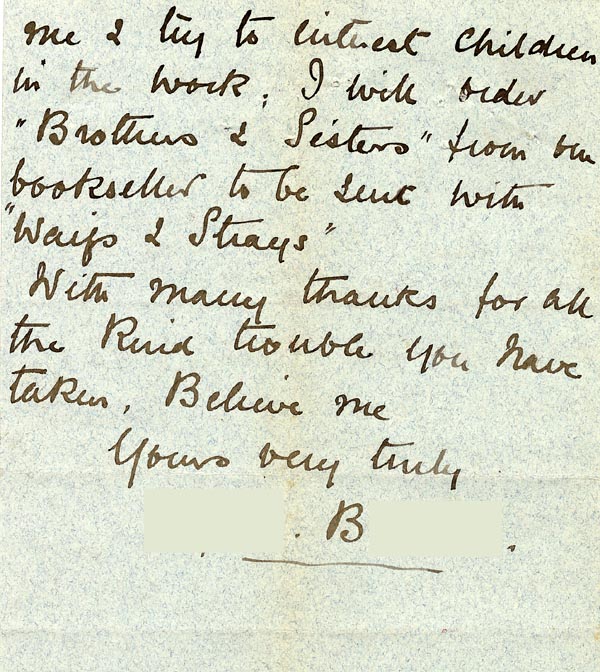 me & try to interest children
in the work; I will order
"Brothers & Sisters" from our
bookseller to be sent with
"Waifs & Strays"
With many thanks for all
the kind trouble you have
taken, Believe me
Yours very truly
. B .